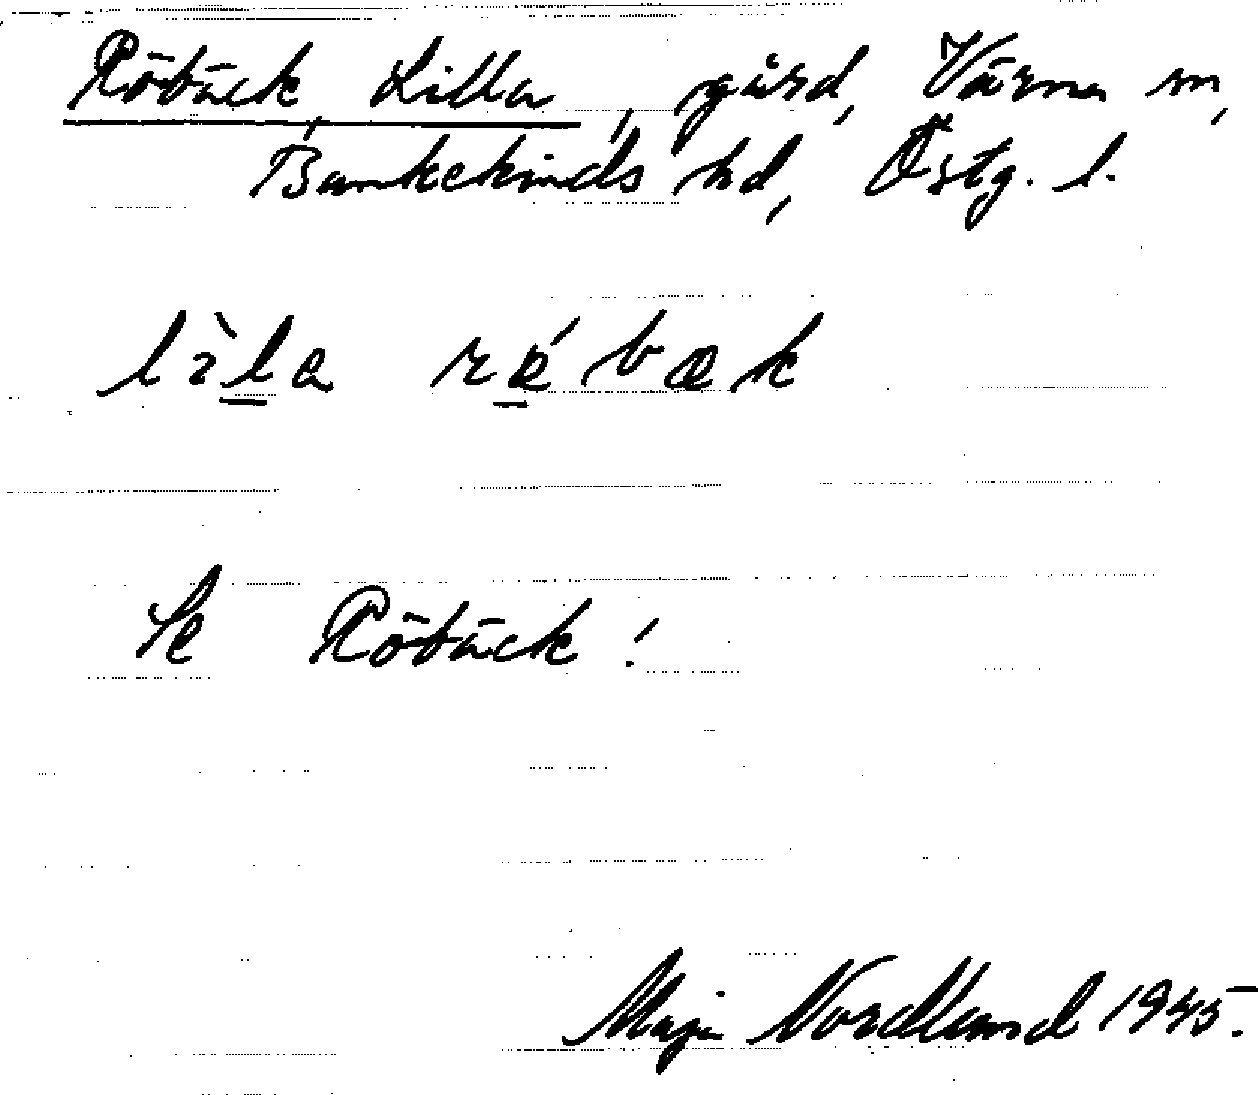 Röbäck, Lilla, gård, Värna sn,
Bankekinds hd, Östg. l.
lìla rǿbæk
Se Röbäck!
Maja Nordlund 1945.